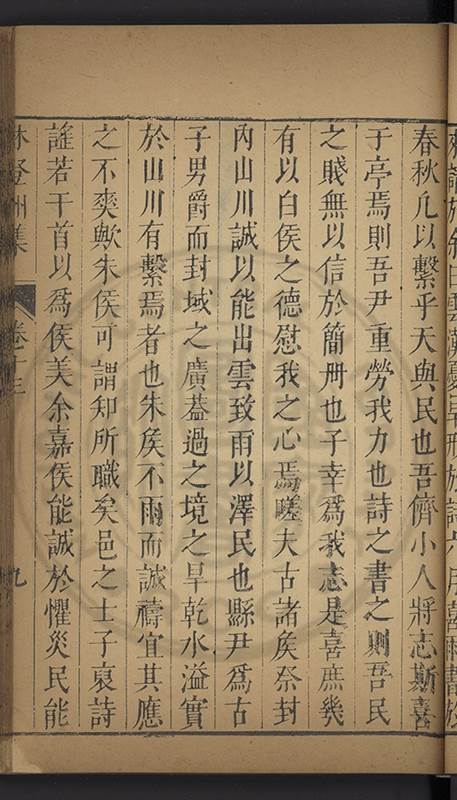 春秋凡以繫乎天與民也吾儕小人將志斯喜
于亭焉則吾尹重勞我力也詩之書之則吾民
之賤無以信於簡冊也子幸爲我志是喜庶幾
有以白侯之德慰我之心焉嗟夫古諸侯祭封
內山川誠以能出雲致雨以澤民也縣尹爲古
子男爵而封域之廣葢過之境之旱乾水溢實
於山川有繫焉者也朱侯不雨而誠禱宜其應
之不爽歟朱侯可謂知所職矣邑之士子裒詩
謠若干首以爲侯美余嘉侯能誠於懼災民能
林登州集
卷十三
九